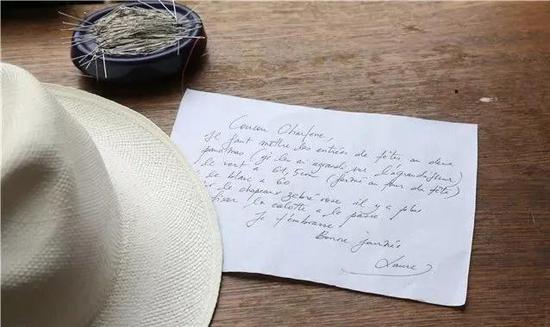 Coucou Charlène,
Il faut mettre les entrées de têtes au deux
panamas (je les ai agrandi sur l'agrandisseur)
le vert à 61,5cm (fermé au four du tété)
le blanc à 60
et le chapeau zébré rose il y a plus
fixer la calotte à la passe
Je t'embrasse
Bonne journée
Laure